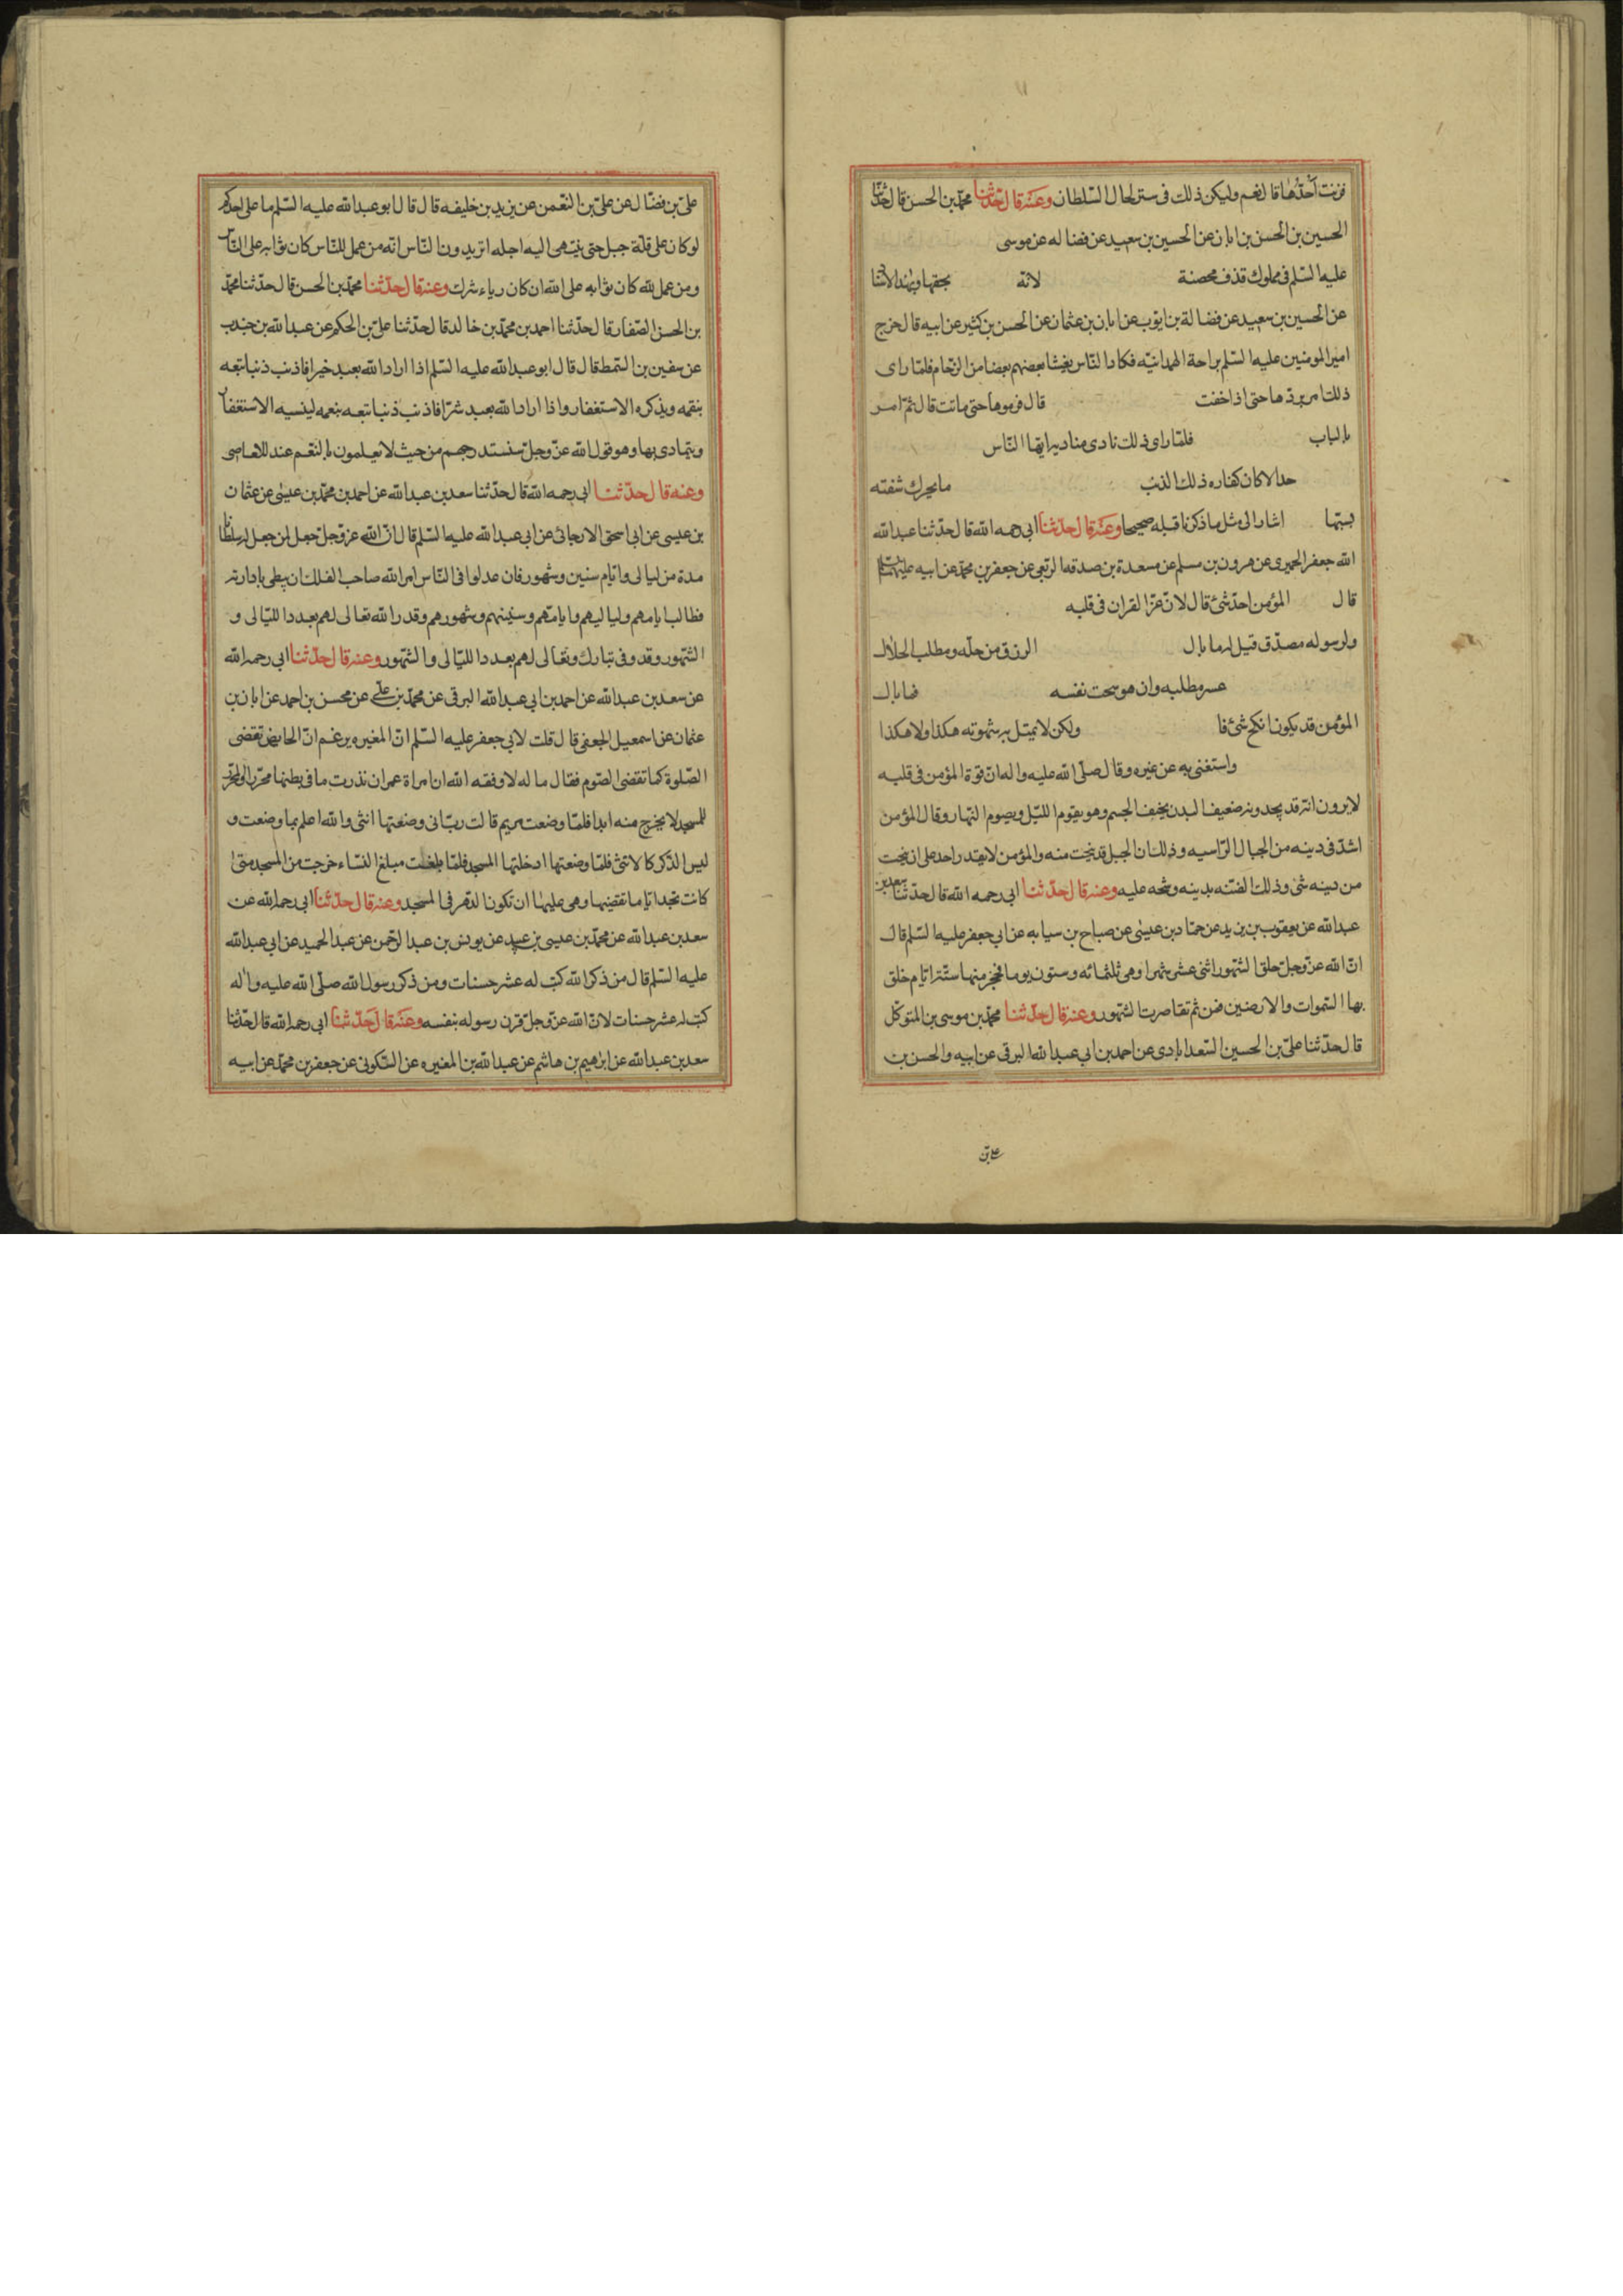 فزنت احدهما قال نعم وليكن ذلك فى ستر لحال السّلطان وعنه قال حدّثنا محمّد بن الحسن قال حدّثنا
الحسين بن الحسن بن ابان عن الحسين بن سعيد عن فضاله عن موسى
عليه السّلم فى مملوك قذف محصنة لانّه بحقها
عن الحسين بن سعيد عن فضالة بن ايّوب عن ابان بن عثمان عن الحسن بن كثير عن ابيه قال خرج
امير المومنين عليه السّلم براحة الهمدانيّه فكاد النّاس يغيثا بعضهم بعضا من الزّحام فلمّا راى
ذلك امر بردّها حتى اذا خفت قال فرموها حتى ماتت قال ثمّ امر
بالباب فلمّا راى ذلك نادى مناديه ايّها النّاس
حدا لا كان كفاره ذلك الذنب ما يحرك شفته
بستها اشار الى مثل ما ذكرنا قبله صحيحا وعنه قال حدّثنا ابى رحمه الله قال حدّثنا عبد الله
الله جعفر الحميرى عن هرون بن مسلم عن مسعدة بن صدقه الرّبعى عن جعفر بن محمّد عن ابيه عليهما السلم
قال المؤمن احدّ شئ قال لانّ عزّ القران فى قلبه
ولرسوله مصدّق قيل له ما بال الرزق من حلّه ومطلب الحلال
عسر مطلبه وان هو سحت نفسه فما بال
المؤمن قد يكون انكح شئ قا ولكن لا يميّل به شهوته هكذا ولا هكذا
واستغنى به عن غيره وقال صلّى الله عليه واله انّ قوّة المؤمن فى قلبه
لا يرون انّه قد يجدونه ضعيف البدن نحيف الجسم وهو يقوم اللّيل ويصوم النّهار وقال المؤمن
اشدّ فى دينه من الجبال الرّاسيه وذلك ان الجبل قد ينحت منه والمؤمن لا يقدر احد على ان ينحت
من دينه شئ وذلك لضنّه بدينه وشحه عليه وعنه قال حدّثنا ابى رحمه الله قال حدّثنا سعد بن
عبد الله عن يعقوب بن يزيد عن حمّاد بن عيسى عن صباح بن سيابه عن ابى جعفر عليه السّلم قال
انّ الله عزّ وجلّ خلق الشّهور اثنى عشر شهرا وهى ثلثمائه وستون يوما فحجز منها ستّة ايّام خلق
بها السّموات والارضين فمن ثمّ تقاصرت الشّهور وعنه قال حدّثنا محمّد بن موسى بن المتوكّل
قال حدّثنا علىّ بن الحسين السّعدابادى عن احمد بن ابى عبد الله البرقى عن ابيه والحسن بن
على بن
علىّ بن فضّال عن علىّ بن النّعمن عن يزيد بن خليفه قال قال ابو عبد الله عليه السّلم ما على احدكم
لو كان على قلّة جبل حتى ينتهى اليه اجله اتريدون النّاس انّه من عمل للنّاس كان ثوابه على النّاس
ومن عمل لله كان ثوابه على الله ان كان رياء شرك وعنه قال حدّثنا محمّد بن الحسن قال حدّثنا محمّد
بن الحسن الصّفار قال حدّثنا احمد بن محمّد بن خالد قال حدّثنا علىّ بن الحكم عن عبد الله بن جندب
عن سفين بن السّمط قال قال ابو عبد الله عليه السّلم اذا اراد الله بعبد خيرا فاذنب ذنبا تبعه
بنقمه ويذكره الاستغفار واذا اراد الله بعبد شرّا فاذنب ذنبا تبعه بنعمه لينسيه الاستغفار
ويتمادى بها وهو قول الله عزّ وجلّ سنستدرجهم من حيث لا يعلمون بالنّعم عند المعاصى
وعنه قال حدّثنا ابى رحمه الله قال حدّثنا سعد بن عبد الله عن احمد بن محمّد بن عيسى عن عثمان
بن عيسى عن ابى اسحق الارجائى عن ابى عبد الله عليه السّلم قال انّ الله عزّ وجلّ جعل لمن جعل له سلطانا
مدة من ليالى وايّام سنين وشهور فان عدلوا فى النّاس امر الله صاحب الفلك ان يبطى بادارته
فطالب ايامهم ولياليهم وايامهم وسنينهم وشهورهم وقدر الله تعالى لهم بعدد اللّيالى و
الشّهور وقد وفى تبارك وتعالى لهم بعدد اللّيالى والشّهور وعنه قال حدّثنا ابى رحمه الله
عن سعد بن عبد الله عن احمد بن ابى عبد الله البرقى عن محمّد بن علىّ عن محسن بن احمد عن ابان بن
عثمان عن اسمعيل الجعفى قال قلت لابى جعفر عليه السّلم انّ المغيره يزعم انّ الحايض تقضى
الصّلوة كما تقضى الصّوم فقال ما له لا وفقه الله ان امراة عمران نذرت ما فى بطنها محرّرا والمحرّر
للمسجد لا يخرج منه ابدا فلمّا وضعت مريم قالت ربّ انى وضعتها انثى والله اعلم بما وضعت و
ليس الذّكر كالانثى فلمّا وضعتها ادخلتها المسجد فلمّا بلغت مبلغ النّساء خرجت من المسجد متى
كانت تجد ايّاما تقضيها وهى عليها ان تكون الدّهر فى المسجد وعنه قال حدّثنا ابى رحمه الله عن
سعد بن عبد الله عن محمّد بن عيسى بن عبيد عن يونس بن عبد الرّحمن عن عبد الحميد عن ابى عبد الله
عليه السّلم قال من ذكر الله كتب له عشر حسنات ومن ذكر رسول الله صلّى الله عليه واله
كتب له عشر حسنات لانّ الله عزّ وجلّ قرن رسوله بنفسه وعنه قال حدّثنا ابى رحمه الله قال حدّثنا
سعد بن عبد الله عن ابرهيم بن هاشم عن عبد الله بن المغيره عن السّكونى عن جعفر بن محمّد عن ابيه